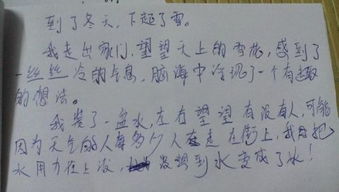 到了冬天，下起了雪。
我走出家门，望望天上的雪花，感到了
一丝丝冷的气息，脑海中浮现了一个有趣
的想法。
我装了一盆水，左右望望有没有人，可能
因为天气的人每多少人在走在街上，我把
水用力往上泼，没想到水变成了冰！